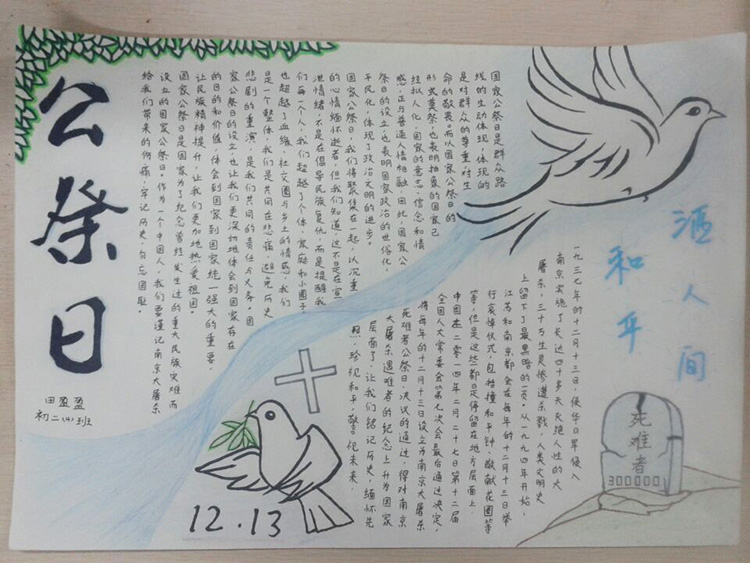 公祭日
田盈盈
初二(4)班
洒人间
和平
国家公祭日是群众路
线的生动体现，体现的
是对群众的尊重，对生
命的敬畏，而以国家公祭日的
形式奠祭，也表明抽象的国家已
经拟人化，国家的意志、信念和情
感，正与普通人情相融。因此，国家公
祭日的设立也表明国家政治的世俗化、
平民化，体现了政治文明的进步。
国家公祭日，我们得聚集在一起，以沉重
的心情缅怀逝者，但我们知道，这不是在宣
泄情绪，不是在倡导民族复仇，而是提醒我
们每一个人，我们超越了个体、家庭和小圈子，
也超越了血缘、社交圈与乡土的情感，我们
是一个整体，我们是共同在悲痛，避免历史
悲剧的重演，是我们共同的责任与义务。国
家公祭日的设立，也让我们更深切地体会到国家存在
的目的和价值，体会到国家统一强大的重要，
让民族精神提升，让我们更加地热爱祖国。
国家公祭日是国家为了纪念曾经发生过的重大民族灾难而
设立的国家公祭日。作为一个中国人，我们要谨记南京大屠杀
给我们带来的伤痛，牢记历史，勿忘国耻。
一九三七年的十二月十三日，侵华日军侵入
南京实施了长达四十多天灭绝人性的大
屠杀，三十万生灵惨遭杀戮，人类文明史
上留下了最黑暗的一页。从一九九四年开始，
江苏和南京都会在每年的十二月十三日举
行哀悼仪式，包括撞和平钟、敬献花圈等
等，但是这些都是停留在地方层面上
中国在二零一四年二月二十七日第十二届
全国人大常委会第七次会最后通过决定，
将每年的十二月十三日设立为南京大屠杀
死难者公祭日，决议的通过，得对南京
大屠杀遇难者的纪念上升为国家
层面了，让我们铭记历史，缅怀先
烈，珍视和平，警记未来。
死难者
300000
12.13